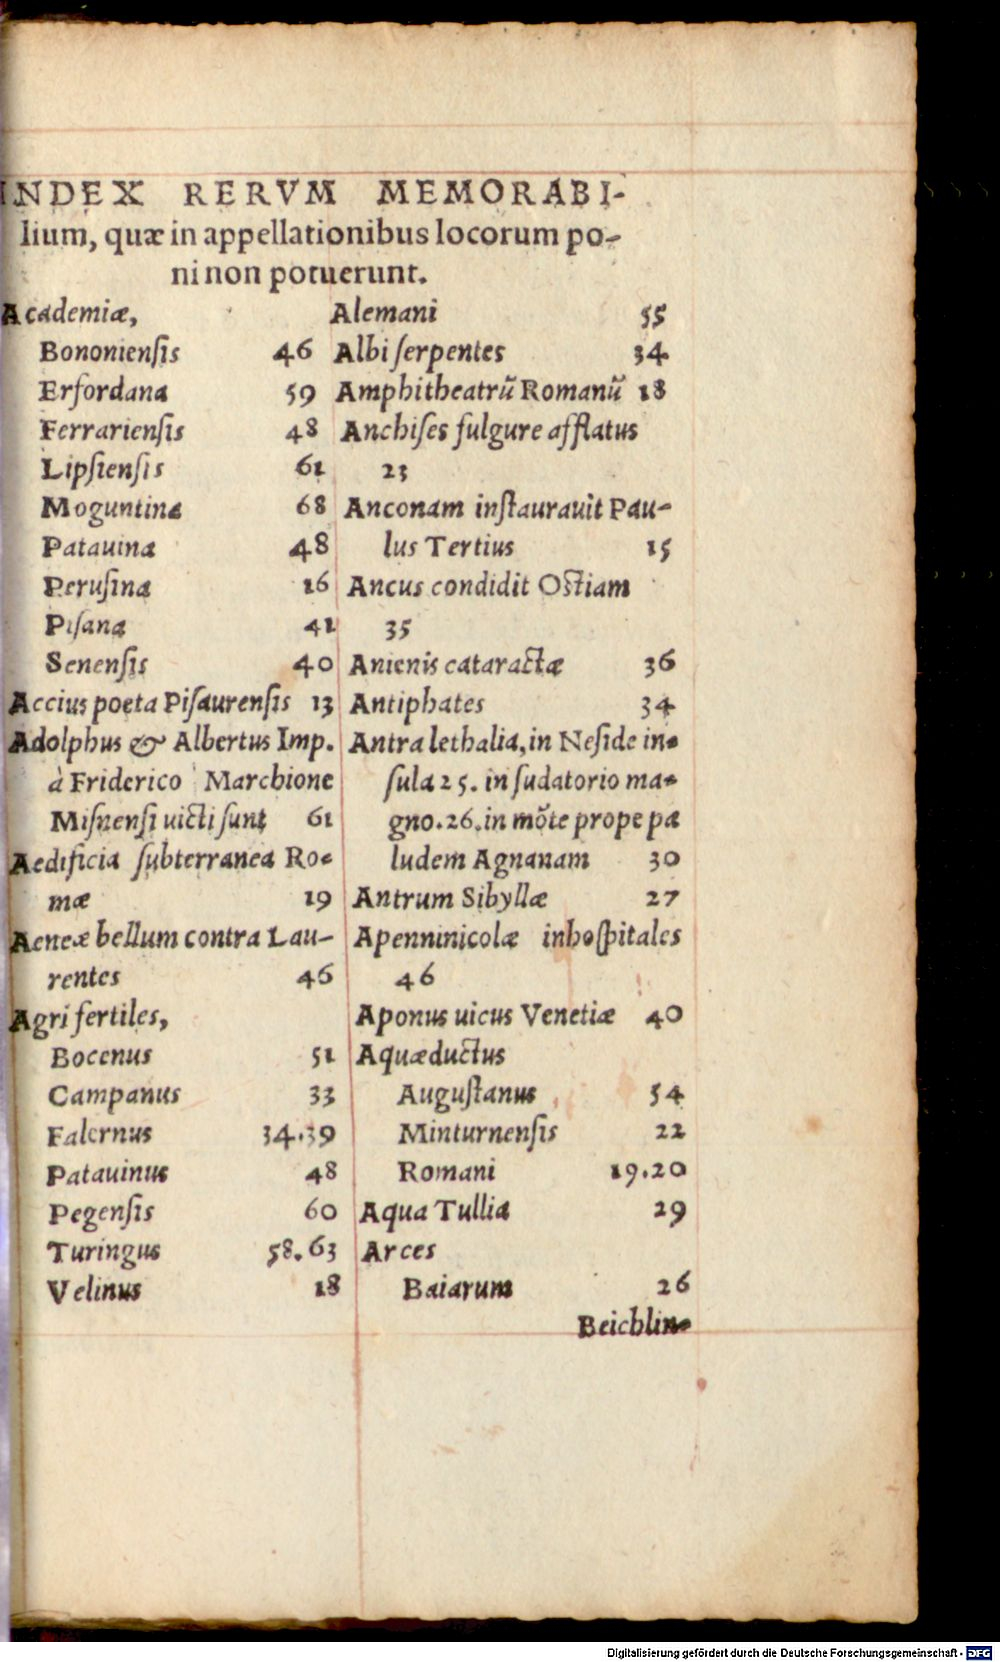 INDEX RERVM MEMORABI-
lium, quæ in appellationibus locorum po-
ni non potuerunt.
Academiæ,
Bononiensis 46
Erfordana 59
Ferrariensis 48
Lipsiensis 61
Moguntina 68
Patauina 48
Perusina 16
Pisana 41
Senensis 40
Accius poeta Pisaurensis 13
Adolphus & Albertus Imp.
à Friderico Marchione
Misnensi uicti sunt 61
Aedificia subterranea Ro-
mæ 19
Aeneæ bellum contra Lau-
rentes 46
Agri fertiles,
Bocenus 51
Campanus 33
Falernus 34.39
Patauinus 48
Pegensis 60
Turingus 58.63
Velinus 18
Alemani 55
Albi serpentes 34
Amphitheatrũ Romanũ 18
Anchises fulgure afflatus
23
Anconam instaurauit Pau-
lus Tertius 15
Ancus condidit Ostiam
35
Anienis cataractæ 36
Antiphates 34
Antra lethalia, in Neside in-
sula 25. in sudatorio ma-
gno. 26. in mõte prope pa
ludem Agnanam 30
Antrum Sibyllæ 27
Apenninicolæ inhospitales
46
Aponus uicus Venetiæ 40
Aquæductus
Augustanus 54
Minturnensis 22
Romani 19.20
Aqua Tullia 29
Arces
Baiarum 26
Beichlin-
Digitalisierung gefördert durch die Deutsche Forschungsgemeinschaft - DFG